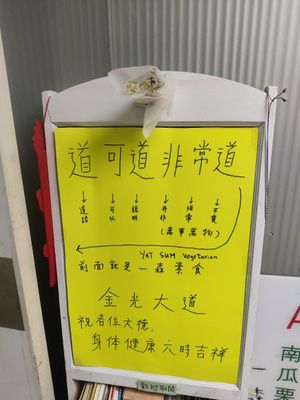 道可道非常道
道路 可以 說明 并非 恒常 不變
(萬事萬物)
YAT SUM Vegetarian
前面就是一森素食
金光大道
祝各位大德,
身体健康六時吉祥
南瓜栗